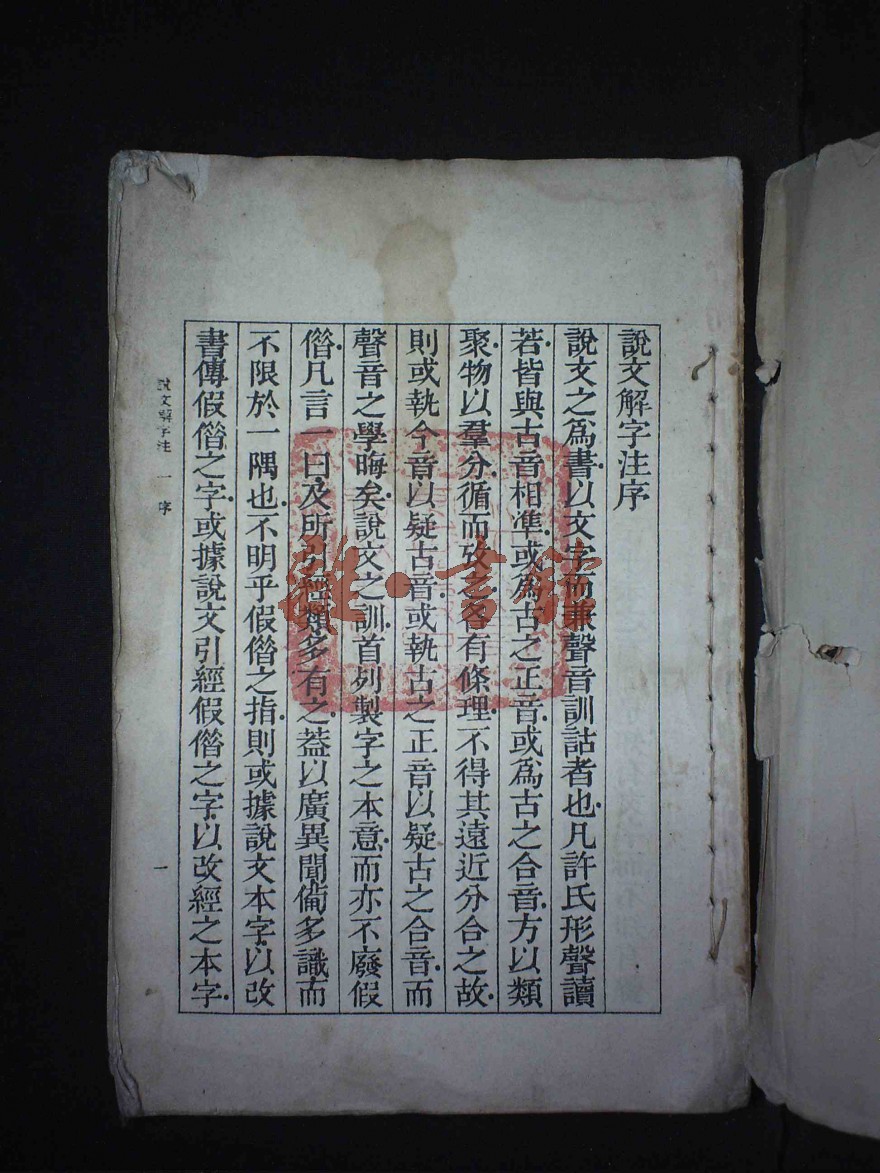 說文解字注序
說文之爲書以文字而兼聲音訓詁者也凡許氏形聲讀
若皆與古音相準或爲古之正音或爲古之合音方以類
聚物以羣分循而攷之各有條理不得其遠近分合之故
則或執今音以疑古音或執古之正音以疑古之合音而
聲音之學晦矣說文之訓首列製字之本意而亦不廢假
偺凡言一曰及所引經類多有之葢以廣異聞備多識而
不限於一隅也不明乎假偺之指則或據說文本字以改
書傳假偺之字或據說文引經假偺之字以改經之本字
說文解字注 一 序
一